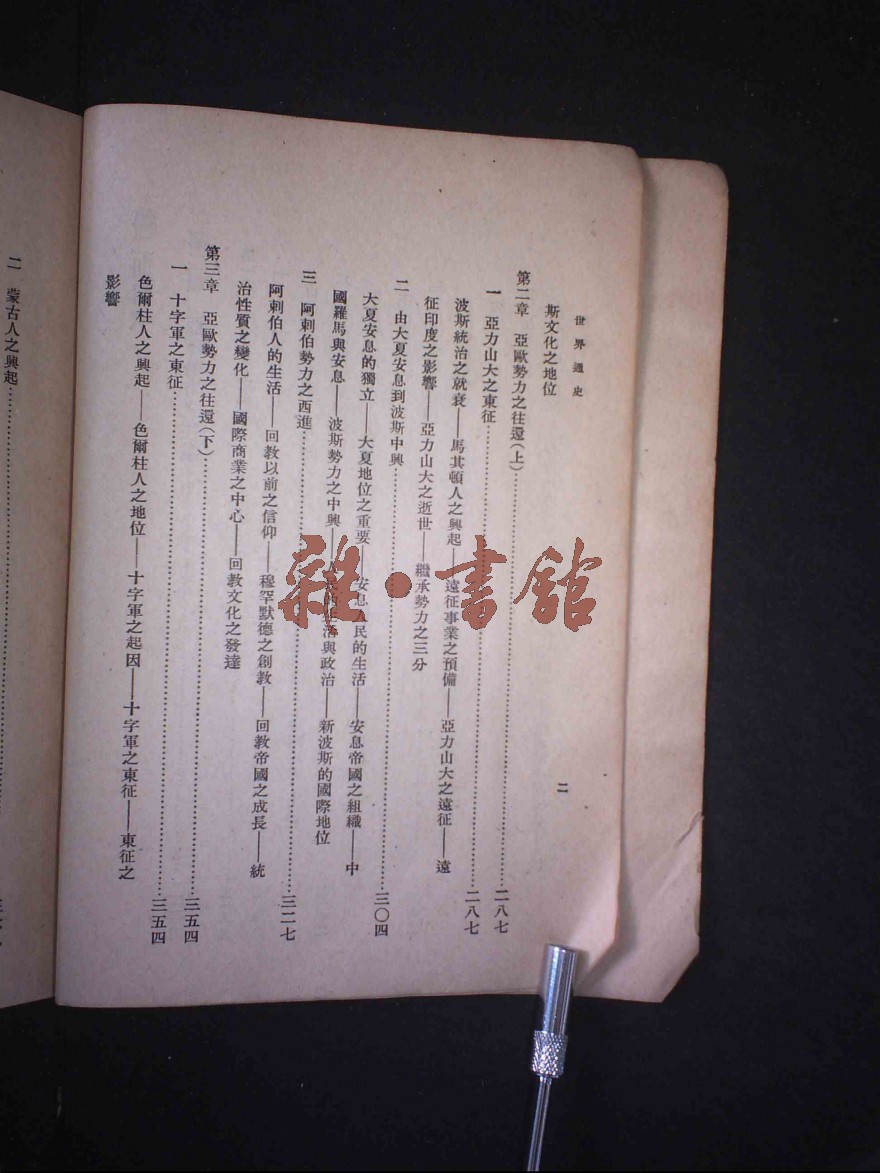 世界通史
二
斯文化之地位
第二章　亞歐勢力之往還（上）……二八七
一　亞力山大之東征……二八七
波斯統治之就衰——馬其頓人之興起——遠征事業之預備——亞力山大之遠征——遠
征印度之影響——亞力山大之逝世——繼承勢力之三分
二　由大夏安息到波斯中興……三〇四
大夏安息的獨立——大夏地位之重要——安息人民的生活——安息帝國之組織——中
國羅馬與安息——波斯勢力之中興——生活與政治——新波斯的國際地位
三　阿剌伯勢力之西進……三二七
阿剌伯人的生活——回教以前之信仰——穆罕默德之創教——回教帝國之成長——統
治性質之變化——國際商業之中心——回教文化之發達
第三章　亞歐勢力之往還（下）……三五四
一　十字軍之東征……三五四
色爾柱人之興起——色爾柱人之地位——十字軍之起因——十字軍之東征——東征之
影響
二　蒙古人之興起……
雜·書館